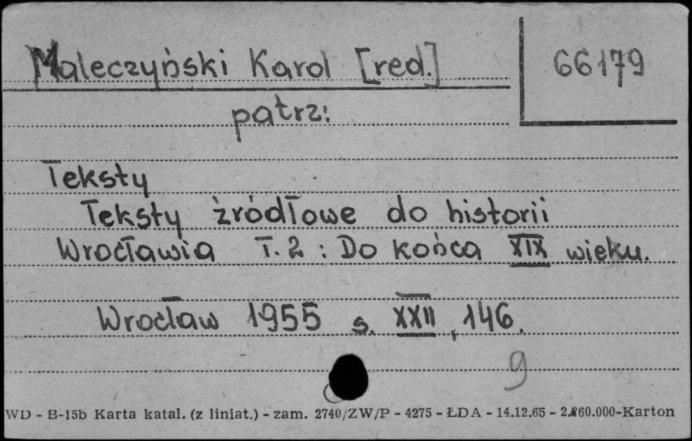 Maleczyński Karol [red.] 66179
patrz:
Teksty
Teksty źródłowe do historii
Wrocławia T.2 : Do końca XIX wieku.
Wrocław 1955 s. XXII, 146.
9
WD - B-15b Karta katal. (z liniat.) - zam. 2740/ZW/P - 4275 - ŁDA - 14.12.65 - 2.860.000-Karton